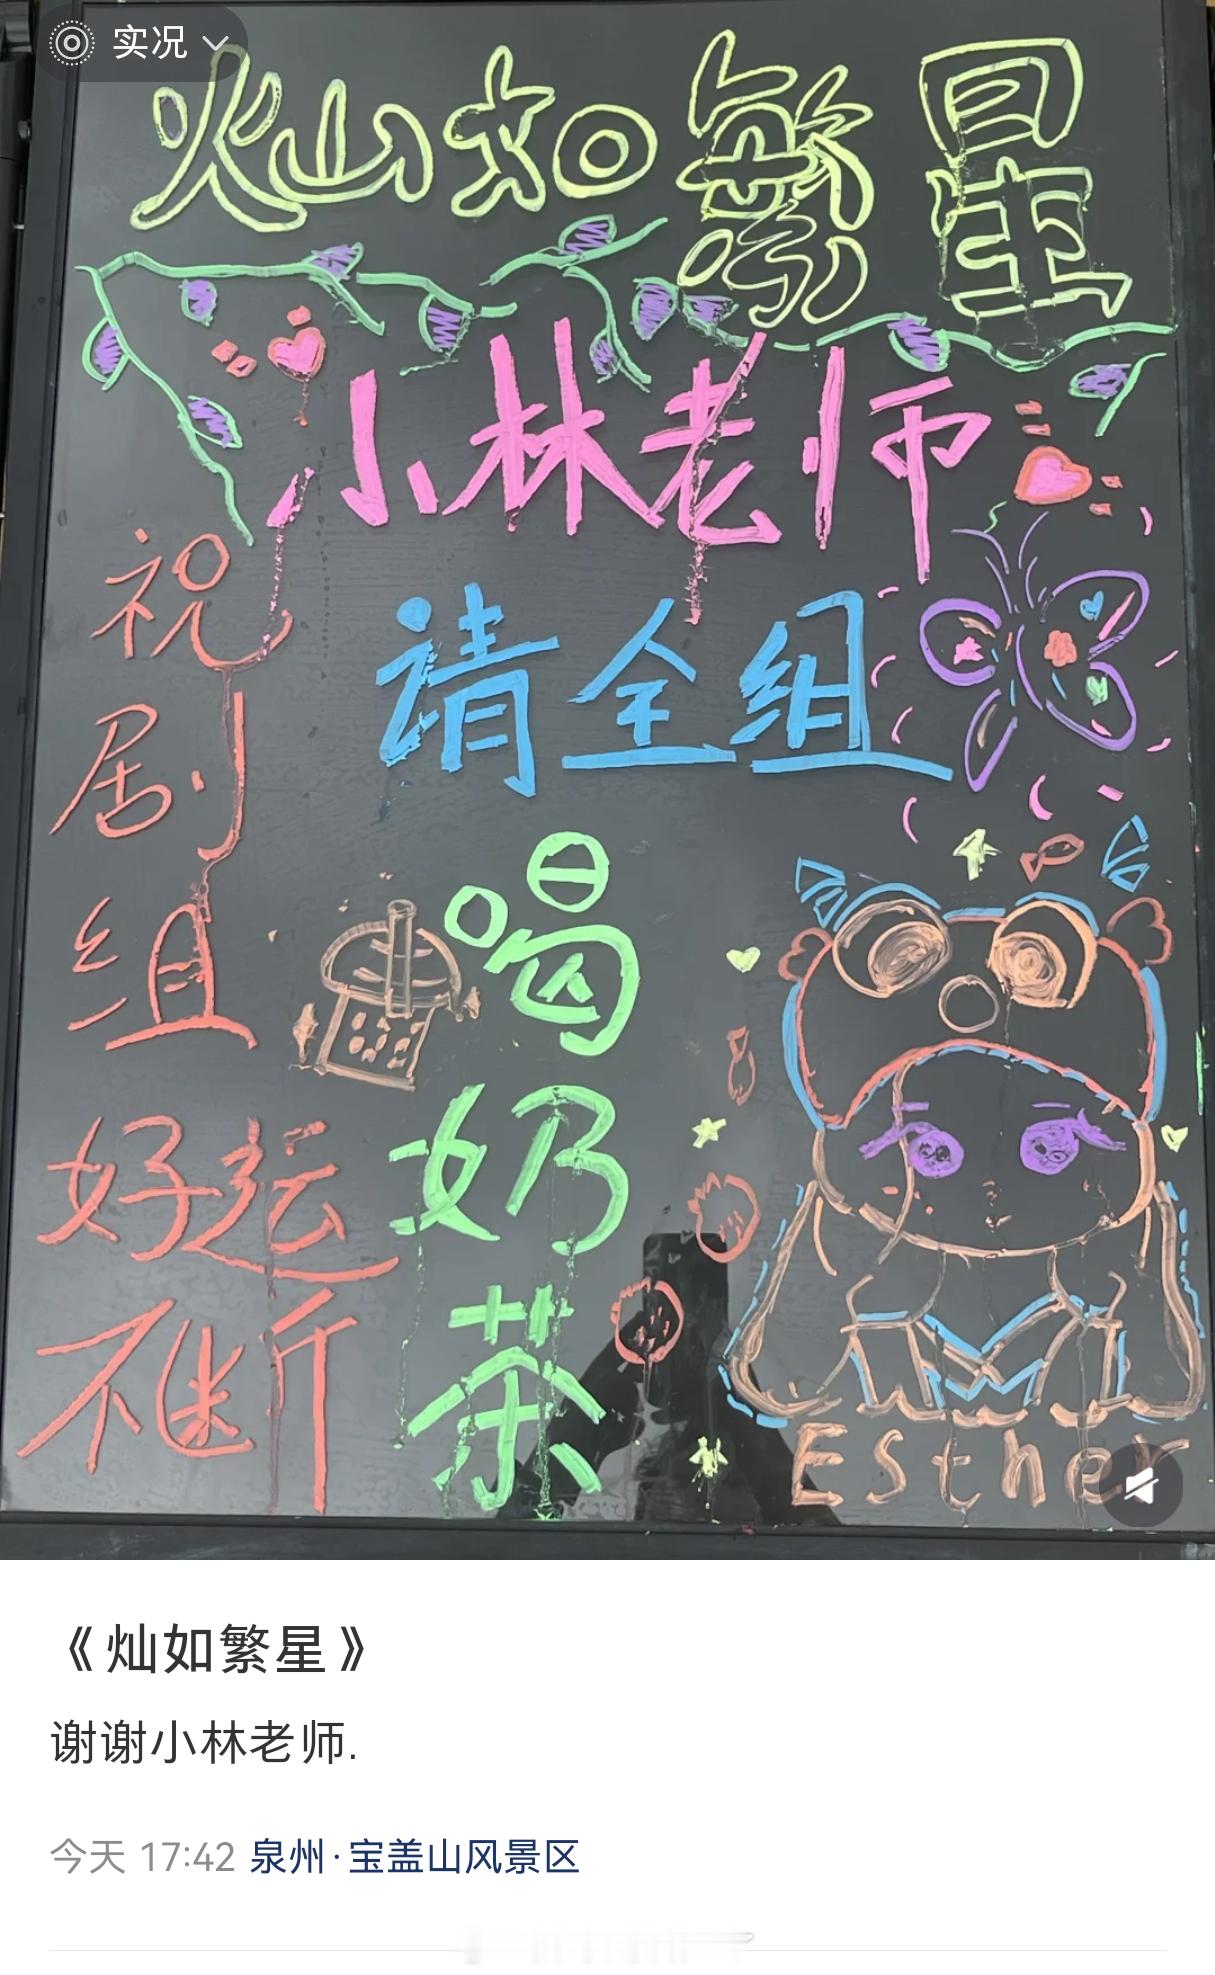 实况
灿如繁星
小林老师
请全组
喝
奶
茶
祝
剧
组
好运
不断
Esther
《灿如繁星》
谢谢小林老师.
今天 17:42 泉州·宝盖山风景区